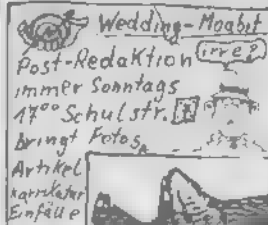 Wedding-Moabit
Post-Redaktion
irre?
immer Sonntags
17°° Schulstr.
bringt Fotos,
Artikel
karrikatur
Einfälle